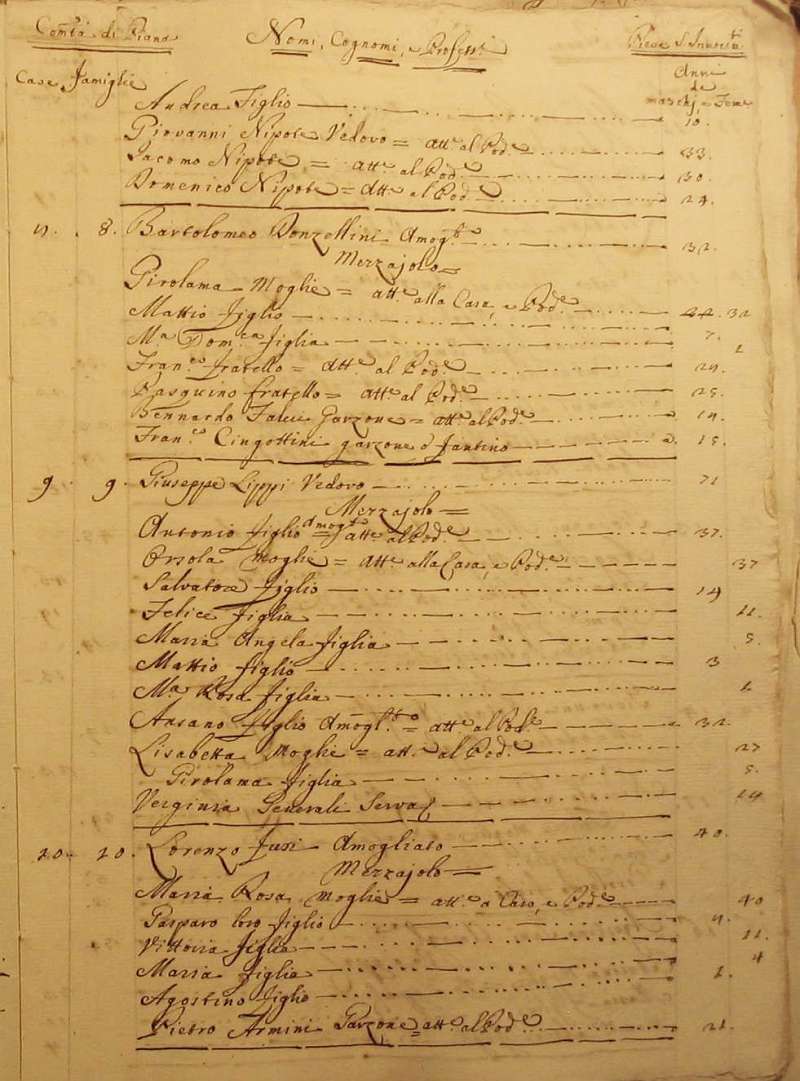 Com.tà di Piana Nomi, Cognomi, e Profess.i
Case Famiglie Anni de maschj, e Fem.e
Andrea Figlio 10.
Giovanni Nipote Vedovo = att.e al Pod.e 33.
Jacomo Nipote = att.e al Pod.e 30.
Domenico Nipote = att.e al Pod.e 24.
8. Bartolomeo Donzellini Amog.to 32.
Mezzajolo =
Girolama Moglie = att.e alla Casa, e Pod.e 32
Mattio figlio 7.
M.a Dom.ca figlia 2
Fran.co fratello = att.e al Pod.e 29.
Pasquino fratello = att.e al Pod.e 25.
Bernardo Garzone = att.e al Pod.e 19.
Fran.co Cingottini garzone o fantino 15.
9. 9. Giuseppe Lippi Vedovo 71
Mezzajolo =
Antonio figlio Amog.to = att.e al Pod.e 37.
Orsola Moglie = att.e alla Casa, e Pod.e 37
Salvatore figlio 14
Felice figlia 11.
Maria Angela figlia 5.
Mattio figlio 3
M.a Rosa figlia
Ansano figlio Amogl.to = att.e al Pod.e 32.
Lisabetta Moglie = att.e al Pod.e 27
Girolama figlia 5.
Verginia Generali Serva 14
10. 10. Lorenzo Amogliato 40.
Mezzajolo =
Maria Rosa Moglie = att.e a Casa, e Pod.e 40
Gasparo loro figlio 9.
Vittoria figlia 11.
Maria figlia 4
Agostino figlio 1.
Pietro Armini Garzone = att.e al Pod.e 21.